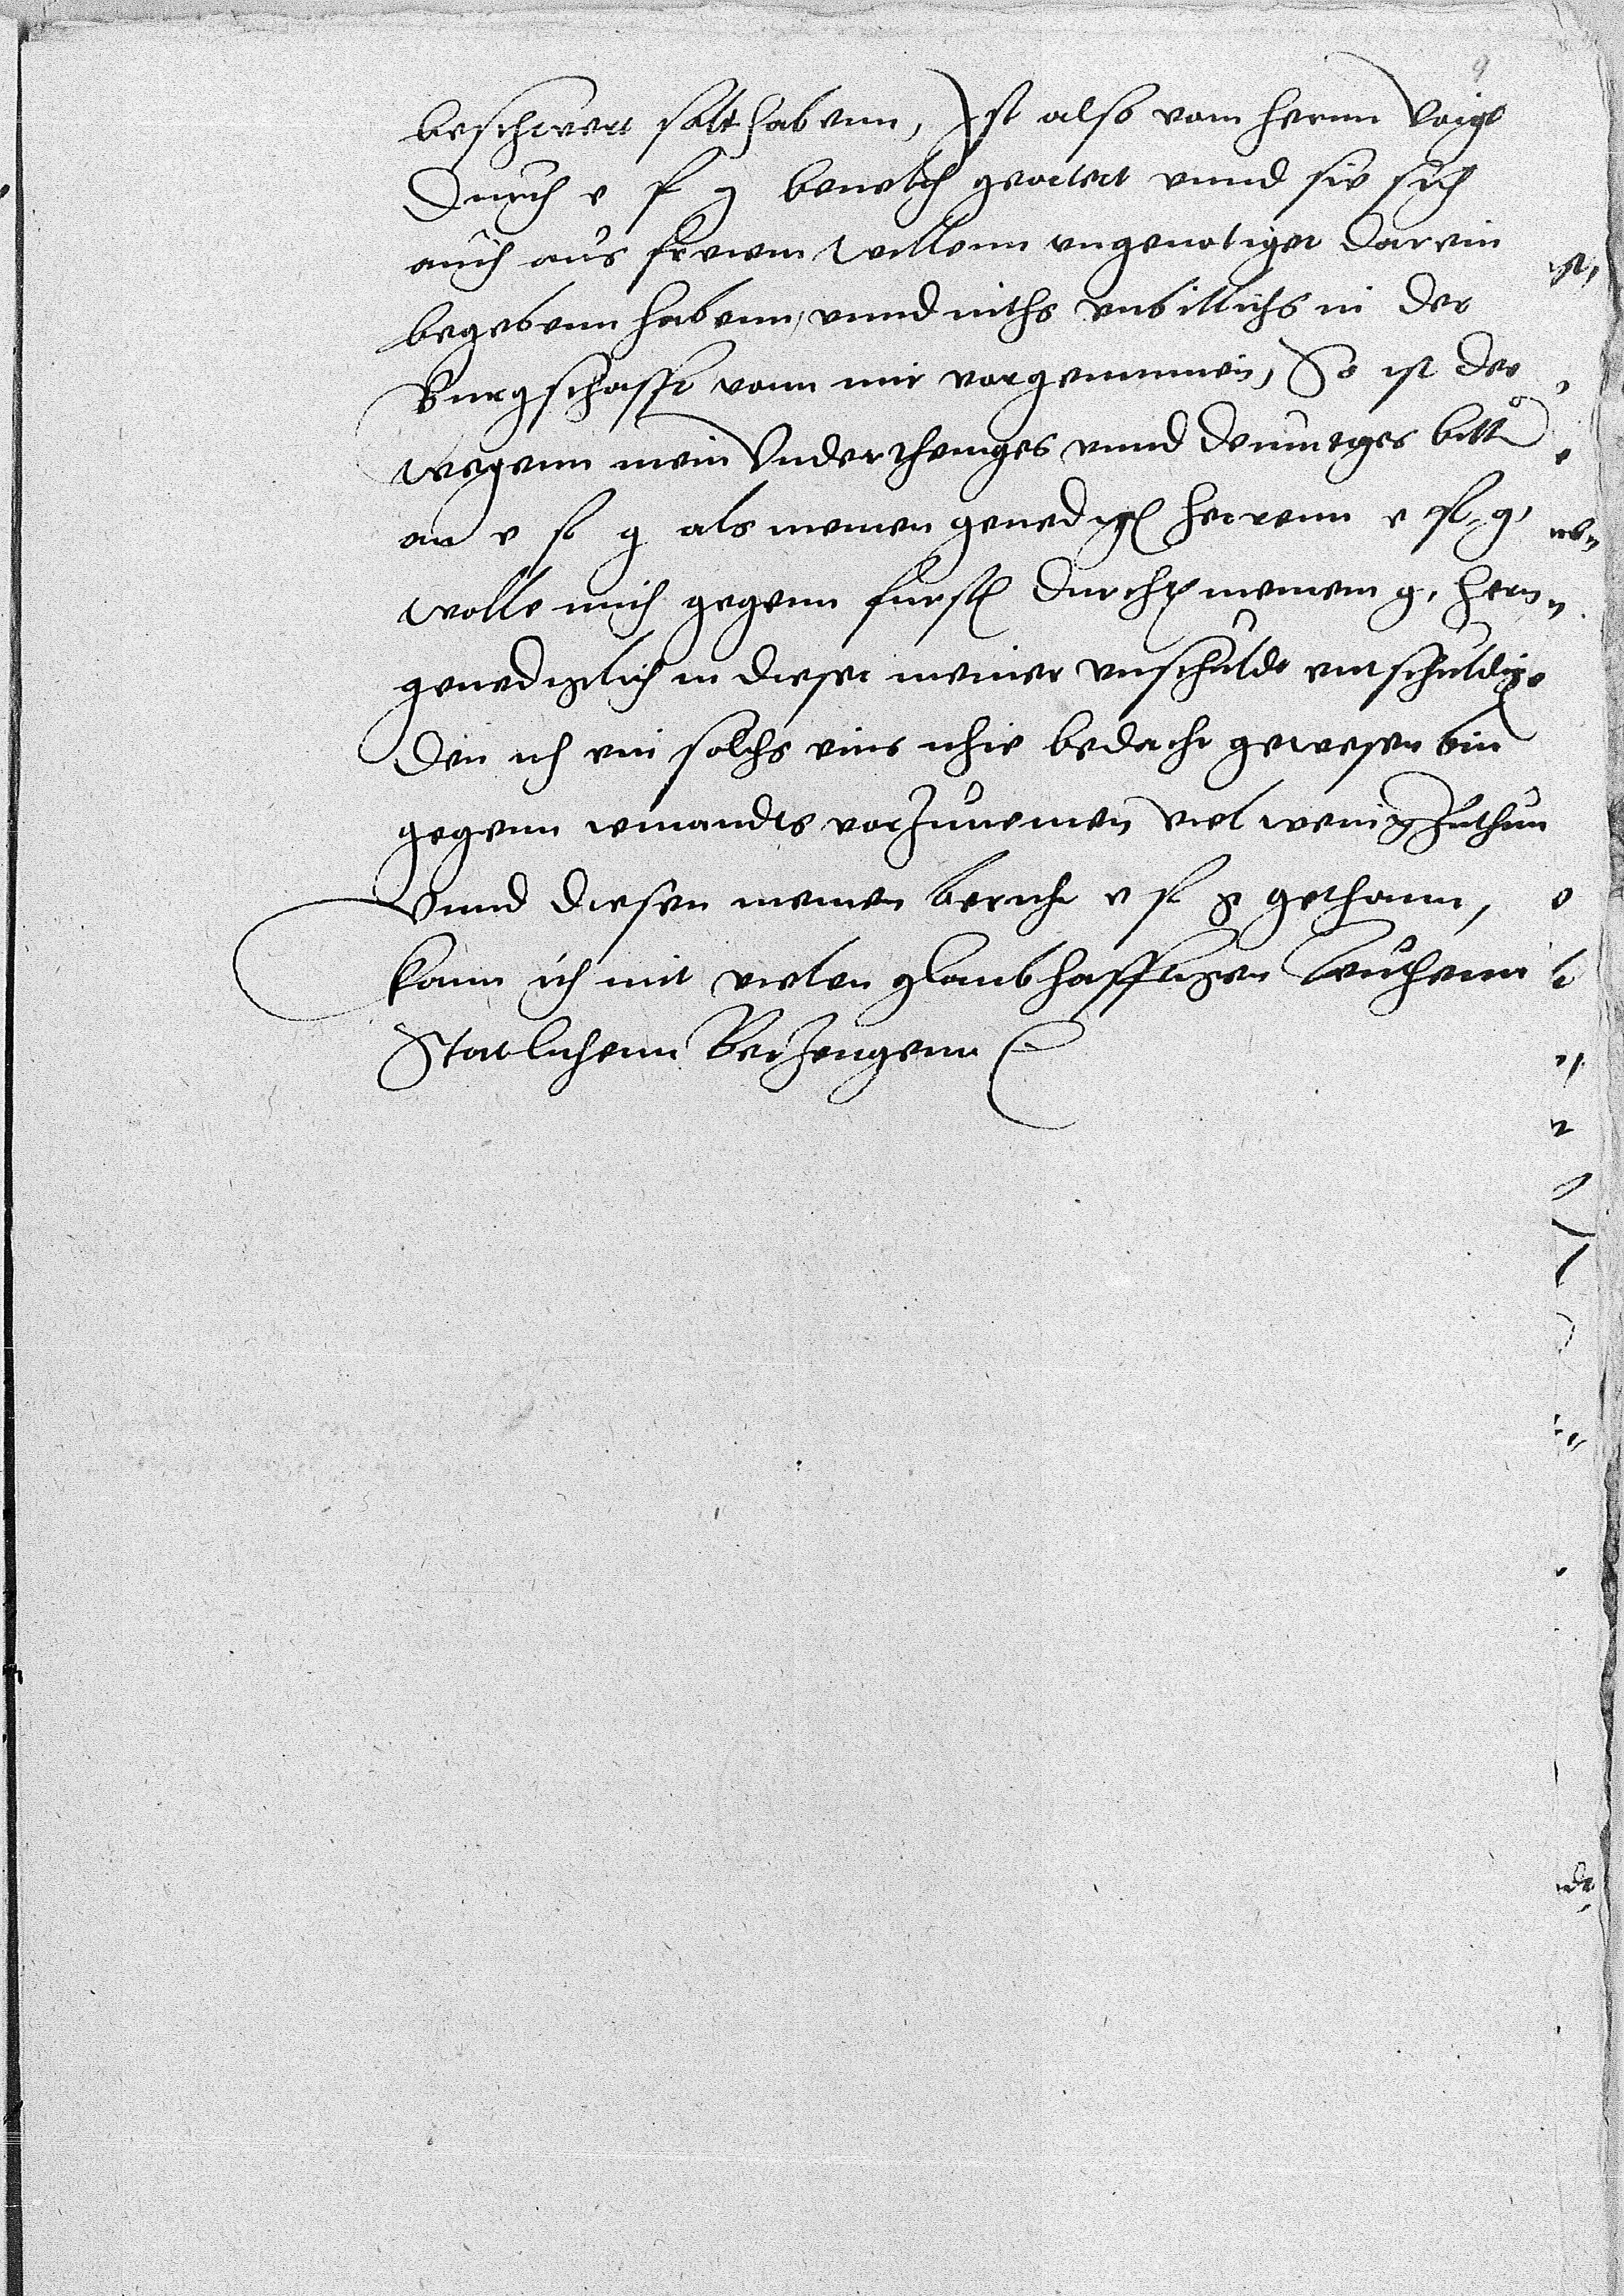 9
beschwert solt habenn, Ist also vom hernn Voigt
Durch e f g beuelch geortert vnnd sie sich
auch aus freyem willenn vngenotiget darein
begebenn habenn, vnnd nichs vnbillichs in der
Burgschafft vonn mir vorgenummen, So ist der
wegenn mein Vnderthenges vnnd demutiges bitt
an e f g als meinen genedigen herrenn e f g,
wolle mich gegenn furst durchl meinem g, hern
genediglich in dieser meiner vnschuldt entschuldigen
Den ich ein solchs eins nhie bedacht gewesen bin
gegenn iemandts vorzunemen viel weniger zuthun
Vnnd diesen meinen bericht e f g gethann,
kann ich mit vielen glaubhafftigen leuthenn
Statlichenn Bezeugenn